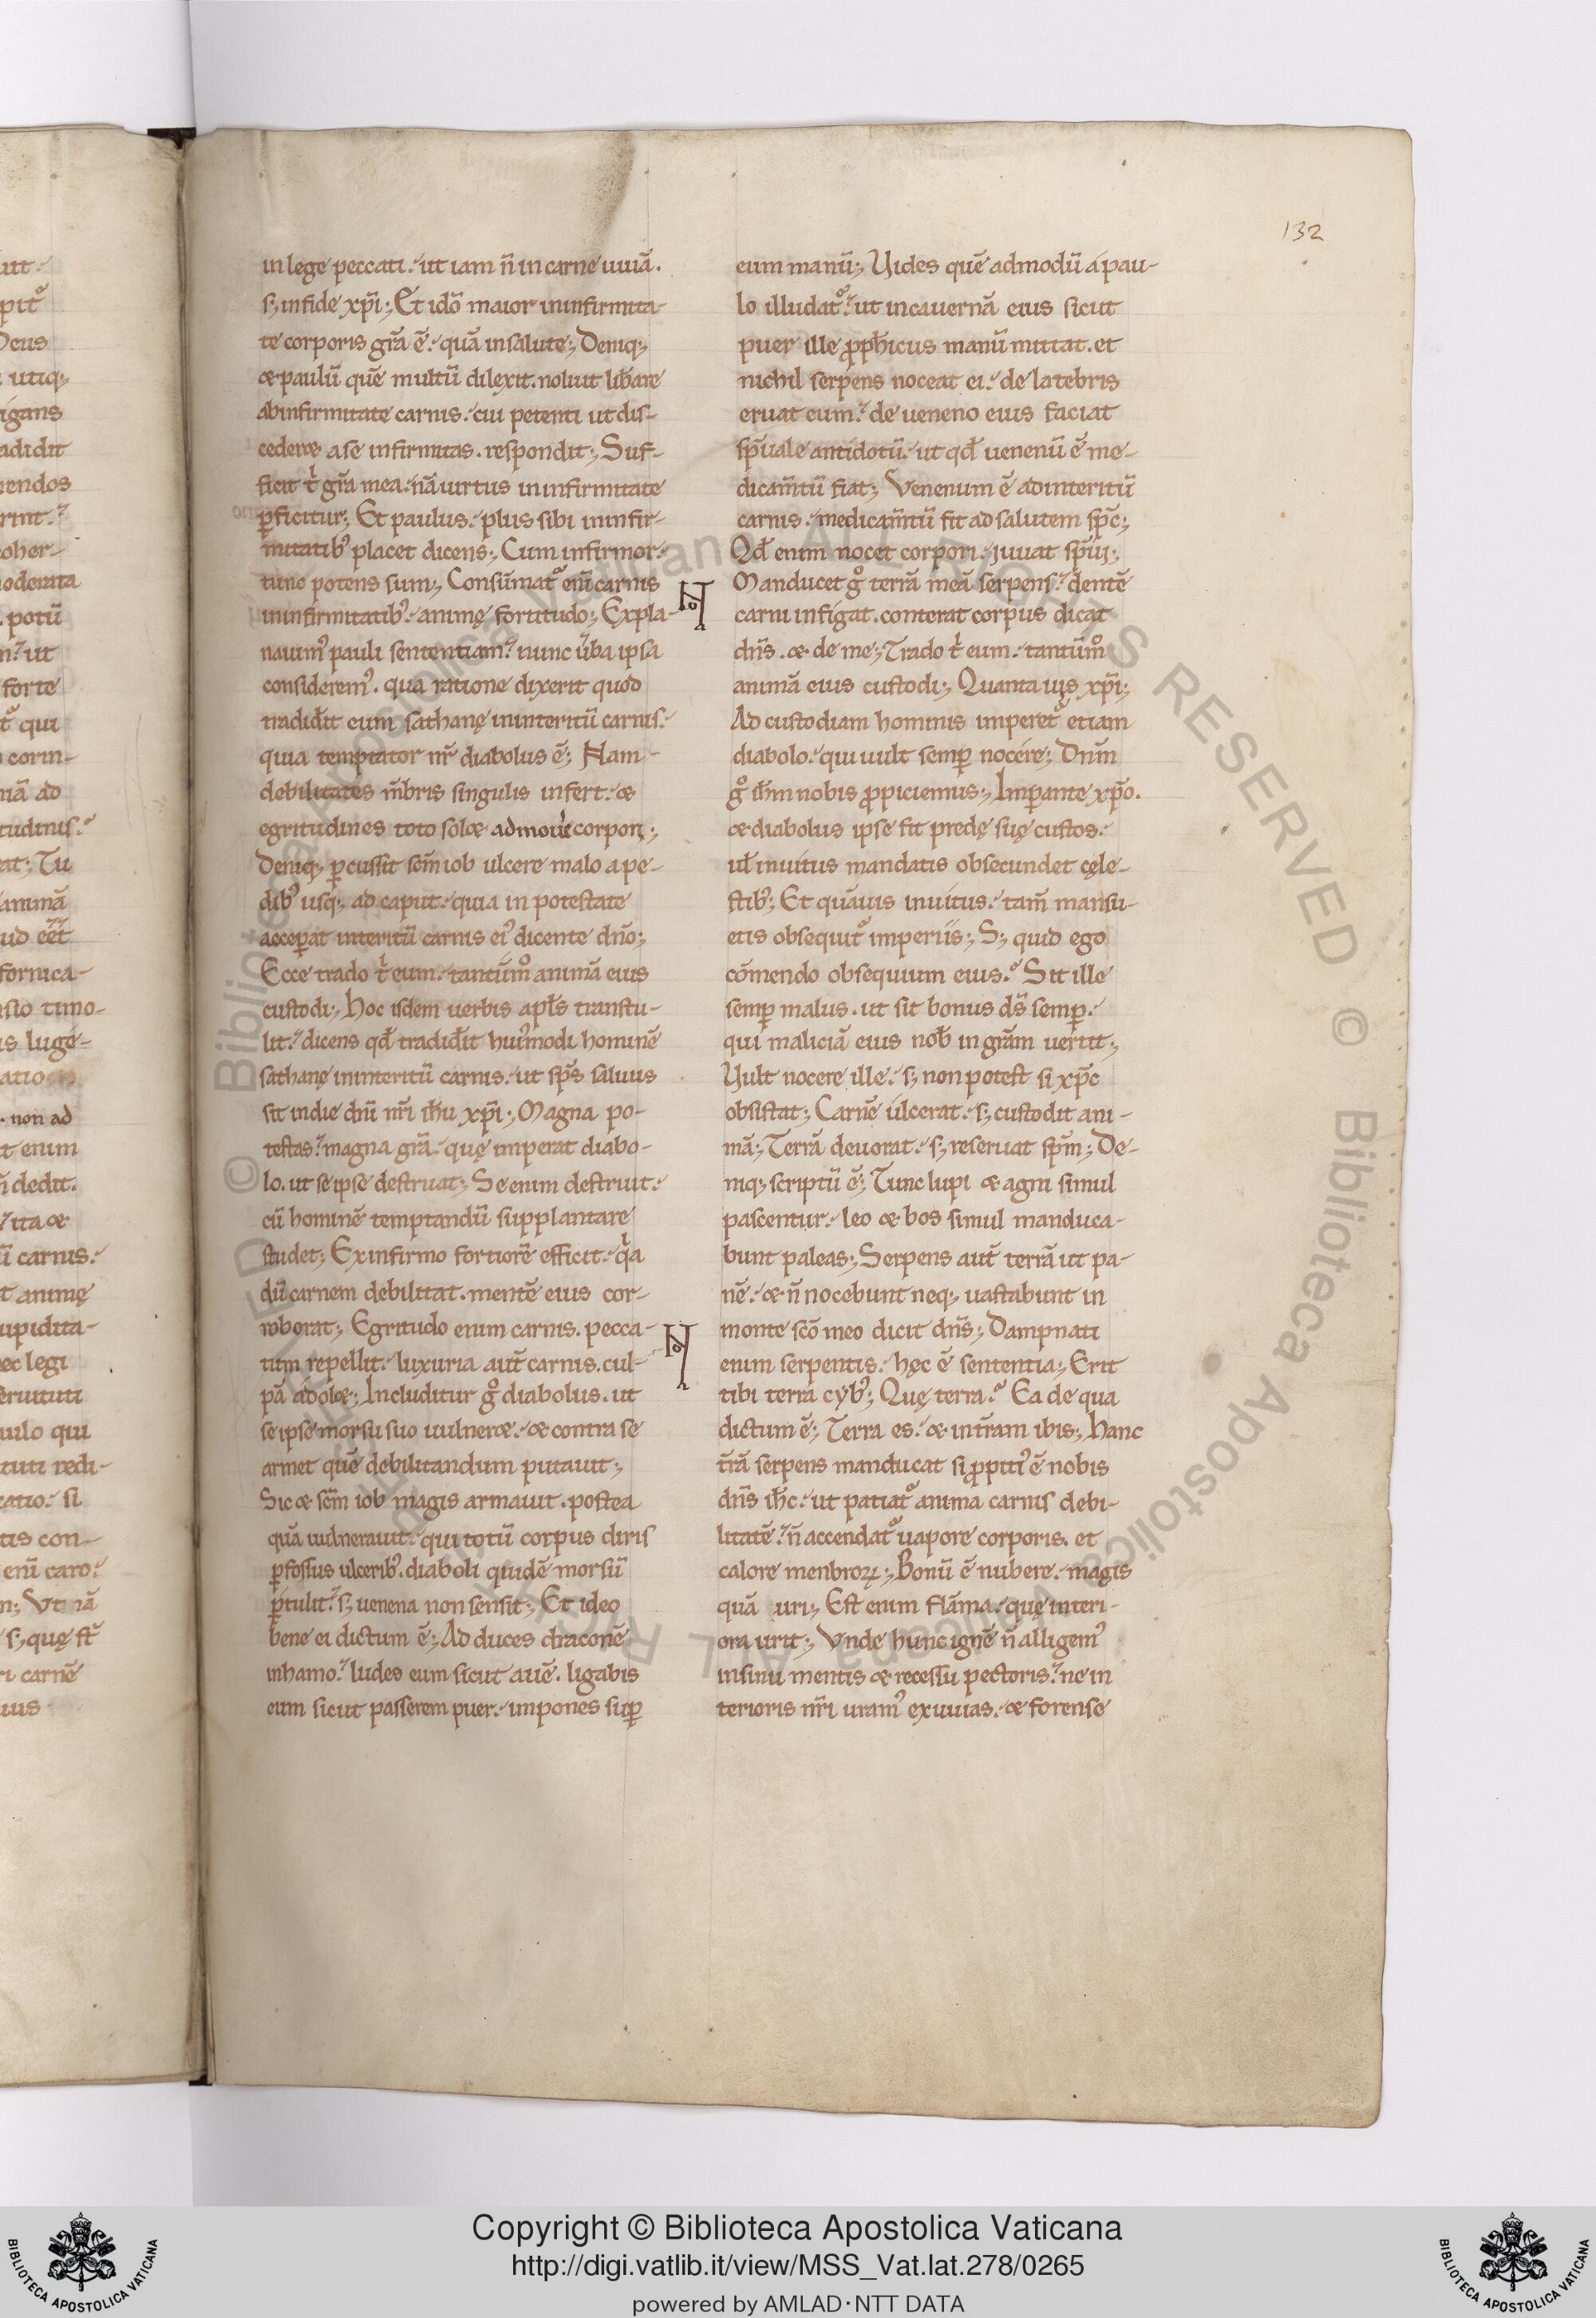 132
in lege peccati. ut iam n̄ in carne uiuā.
s; in fide xp̄i; Et idō maior in infirmita-
te corporis grā ē. quā in salute; Deniq;
& paulū quē multū dilexit. noluit lib̄are
ab infirmitate carnis. cui petenti ut dis-
cederet a se infirmitas. respondit; Suf-
ficit t' grā mea. nā uirtus in infirmitate
p̱ficitur; Et paulus. plus sibi in infir-
mitatib; placet dicens; Cum infirmor.
tunc potens sum; Consūmat᷑ eni carnis
in infirmitatib; animę fortitudo; Expla-
nauim᷒ pauli sententiam. nunc ūba ipsa
considerem᷒. qua ratione dixerit quod
tradidit eum sathanę in interitū carnis.
quia temptator nr̄ diabolus ē; Nam
debilitates m̄bris singulis infert. &
egritudines toto solet admouēr corpori;
Deniq; p̱cussit scm̄ iob ulcere malo a pe-
dib; usq; ad caput. quia in potestate
accep̱at interitū carnis ei᷒ dicente dn̄o;
Ecce trado t' eum. tantūm̊ animā eius
custodi; Hoc isdem uerbis apl̄s transtu-
lit. dicens qđ tradidit hui᷒modi hominē
sathanę in interitū carnis. ut sp̄s saluus
sit in die dn̄i nr̄i ih̄u xp̄i; Magna po-
testas. magna grā. quę imperat diabo-
lo. ut se ipse destruat; Se enim destruit.
cū hominē temptandū supplantare
studet; Ex infirmo fortiorē efficit. q'a
dū carnem debilitat. mentē eius cor-
roborat; Egritudo enim carnis. pecca-
tum repellit. luxuria aut̄ carnis. cul-
pā adolet; Includitur g̊ diabolus. ut
se ipse morsu suo uulneret. & contra se
armet quē debilitandum putauit;
Sic & scm̄ iob magis armauit. postea
quā uulnerauit. qui totū corpus diris
p̱fossus ulcerib;. diaboli quidē morsū
p̱tulit. s; uenena non sensit; Et ideo
bene ei dictum ē; Ad duces draconē
in hamo. ludes eum sicut auē. ligabis
eum sicut passerem puer. impones sup̱
eum manū; Uides quē admodū a pau-
lo illudat᷑. ut in cauernā eius sicut
puer ille pph̄icus manū mittat. et
nichil serpens noceat ei. de latebris
eruat eum. de ueneno eius faciat
sp̄uale antidotū. ut qđ uenenū ē me-
dicam̄tū fiat; Venenum ē ad interitū
carnis. medicam̄tū fit ad salutem sp̄c;
Qđ enim nocet corpori. iuuat sp̄ui;
Manducet g̊ terrā meā serpens. dentē
carni infigat. conterat corpus dicat
dn̄s. & de me; Trado t' eum. tantūm̊
animā eius custodi; Quanta uis xp̄i;
Ad custodiam hominis imperet᷑ etiam
diabolo. qui uult semp̱ nocere; Dn̄m
g̊ ih̄m nobis ppiciemus; Imp̱ante xp̄o.
& diabolus ipse fit predę suę custos.
ul̄ inuitus mandatis obsecundet cęle-
stib;; Et quāuis inuitus. tam̄ mansu-
etis obsequit᷑ imperiis; S; quid ego
cōmendo obsequium eius. Sit ille
semp̱ malus. ut sit bonus d̄s semp̱.
qui maliciā eius nob̄ in grām uertit;
Uult nocere ille. s; non potest si xp̄c
obsistat; Carnē ulcerat. s; custodit ani-
mā; Terrā deuorat. s; reseruat sp̄m; De-
niq; scriptū ē; Tunc lupi & agni simul
pascentur. leo & bos simul manduca-
bunt paleas; Serpens aut̄ terrā ut pa-
nē. & n̄ nocebunt neq; uastabunt in
monte scō meo dicit dn̄s; Dampnati
enim serpentis. hęc ē sententia; Erit
tibi terra cyb᷒; Quę terra. Ea de qua
dictum ē; Terra es. & in tr̄am ibis; Hanc
tr̄ā serpens manducat si ppiti᷒ ē nobis
dn̄s ih̄c. ut patiat᷑ anima carnis debi-
litatē. n̄ accendat᷑ uapore corporis. et
calore menbroꝝ; Bonū ē nubere. magis
quā uri; Est enim flāma. quę interi-
ora urit; Vnde hunc ignē n̄ alligem᷒
in sinu mentis & recessu pectoris. ne in
terioris nr̄i uram᷒ exuuias. & forense
Copyright © Biblioteca Apostolica Vaticana
http://digi.vatlib.it/view/MSS_Vat.lat.278/0265
powered by AMLAD·NTT DATA
BIBLIOTECA APOSTOLICA VATICANA
BIBLIOTECA APOSTOLICA VATICANA